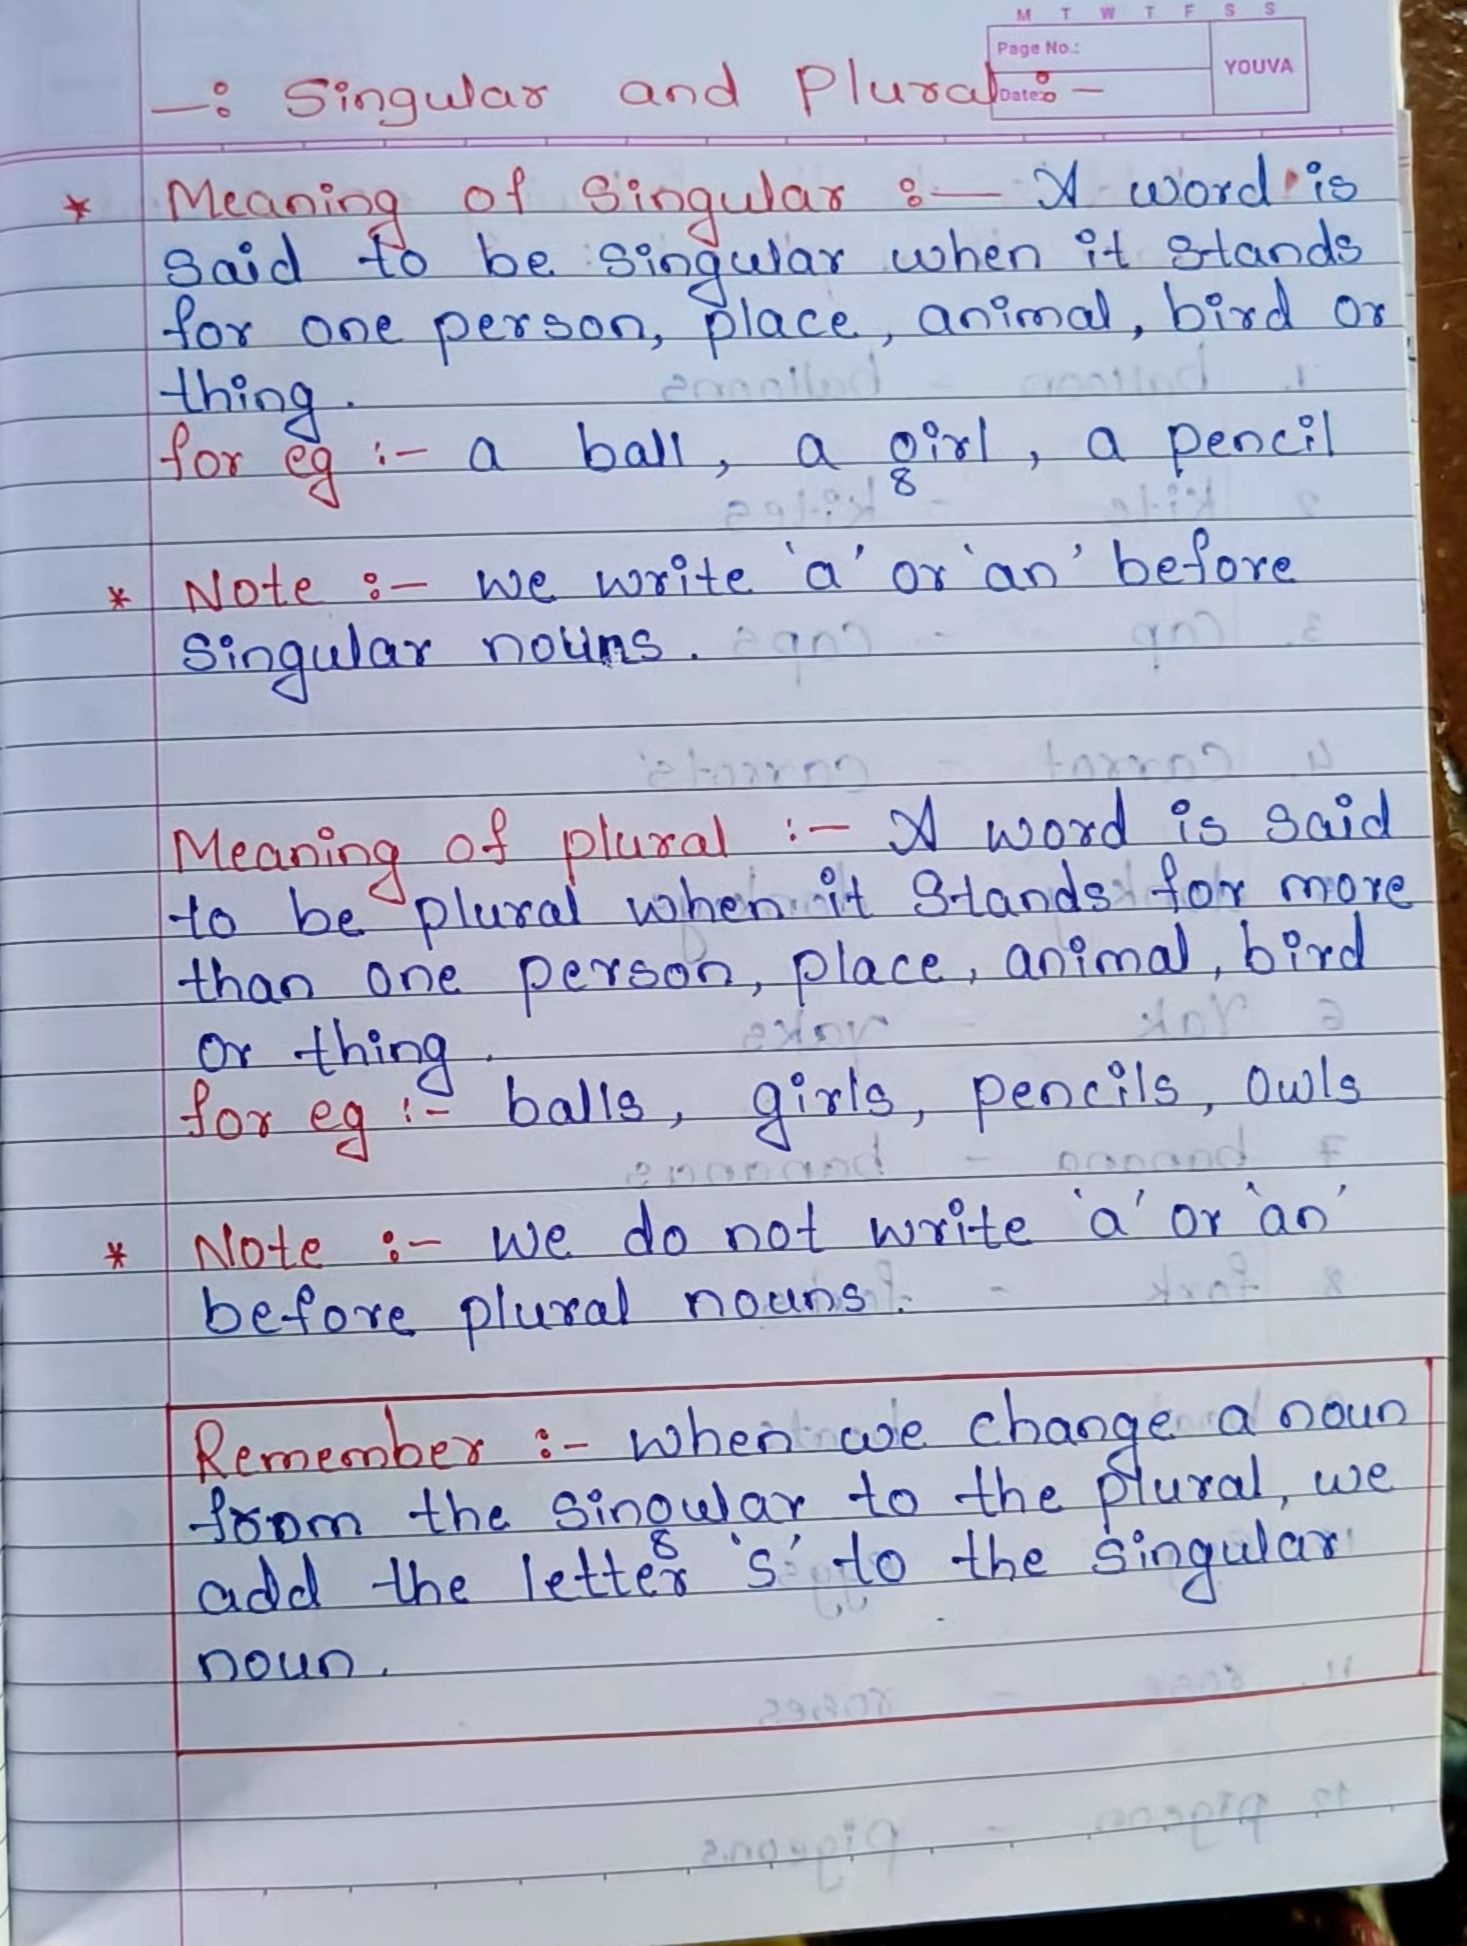 M T W T F S S
Page No.:
YOUVA
Date:
—: Singular and Plural :—
* Meaning of Singular :— A word is
said to be singular when it stands
for one person, place, animal, bird or
thing.
for eg :- a ball, a girl, a pencil
* Note :- we write 'a' or 'an' before
singular nouns.
Meaning of plural :- A word is said
to be plural when it stands for more
than one person, place, animal, bird
or thing.
for eg :- balls, girls, pencils, owls
* Note :- we do not write 'a' or 'an'
before plural nouns.
Remember :- when we change a noun
from the singular to the plural, we
add the letter 's' to the singular
noun.